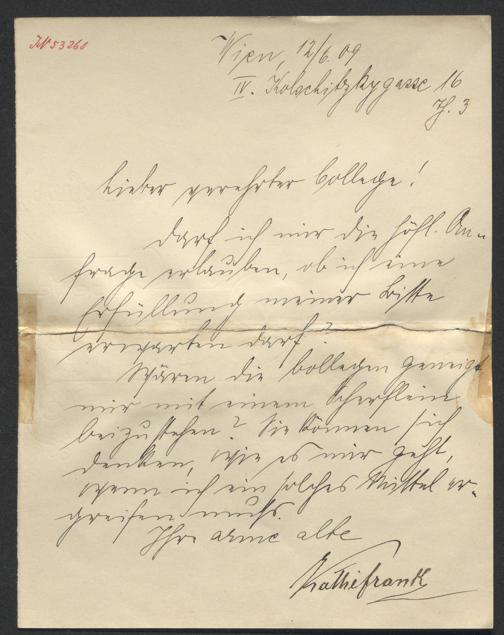 JN 53260
Wien, 12/6. 09
IV. Kolschitzkygasse 16
Th. 3
Lieber verehrter College!
Darf ich mir die höfl. An-
frage erlauben, ob ich eine
Erfüllung meiner Bitte
erwarten darf?
Wären die Collegen geneigt
mir mit einem Scherflein
beizustehen? Sie können sich
denken, wie es mir geht,
wenn ich ein solches Mittel er-
greifen muß.
Ihre arme alte
Kathi Frank